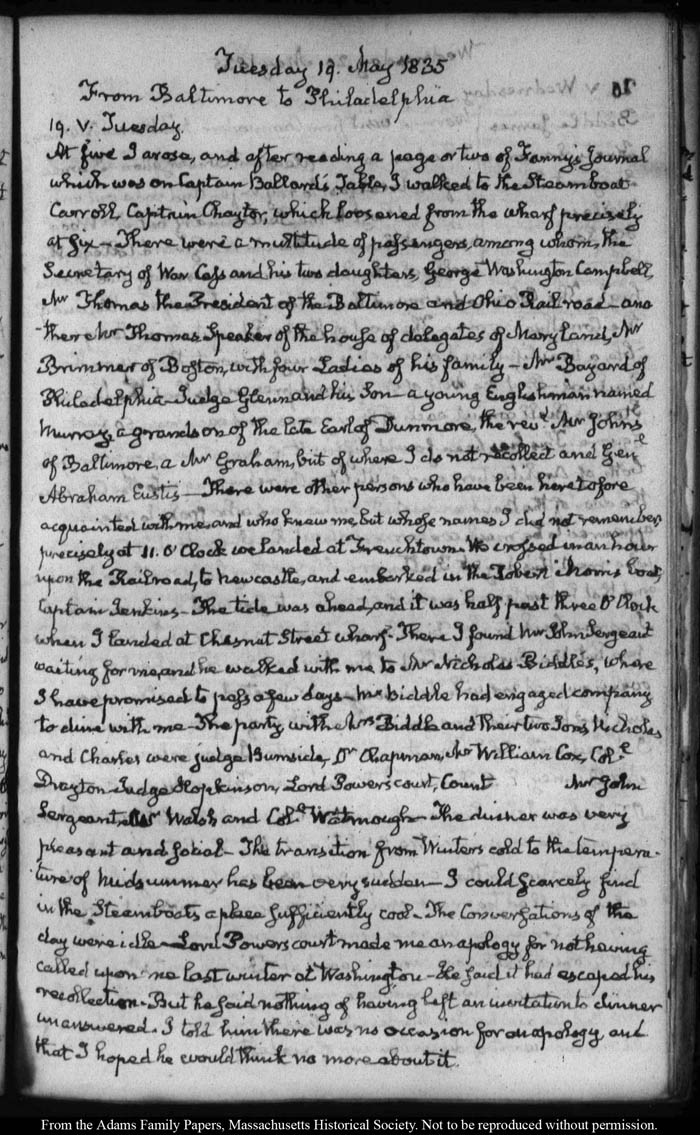 Tuesday 19. May 1835
From Baltimore to Philadelphia
19. V. Tuesday.
At five I arose, and after reading a page or two of Fanny's Journal
which was on Captain Ballard's Table, I walked to the Steamboat
Carroll, Captain Chaytor, which loosened from the wharf precisely
at six – There were a multitude of passengers, among whom, the
Secretary of War Cass and his two daughters, George Washington Campbell,
Mr Thomas the President of the Baltimore and Ohio Rail road – ano
-ther Mr Thomas Speaker of the house of delegates of Maryland, Mr
Brimmer of Boston, with four Ladies of his family – Mr Bayard of
Philadelphia – Judge Glenn and his Son – a young Englishman named
Murray, a grandson of the late Earl of Dunmore, the revd Mr Johns
of Baltimore, a Mr Graham, but of where I do not recollect and Genl
Abraham Eustis – There were other persons who have been heretofore
acquainted with me, and who knew me, but whose names I did not remember
precisely at 11. O'Clock we landed at Frenchtown. We crossed in an hour
upon the Railroad, to Newcastle, and embarked in the Robert Morris boat,
Captain Jenkins – The tide was ahead, and it was half past three O'Clock
when I landed at Chesnut Street wharf – There I found Mr John Sergeant
waiting for me, and he walked with me to Mr Nicholas Biddle's, where
I have promised to pass a few days – Mr Biddle had engaged company
to dine with me – The party, with Mrs Biddle and their two Sons, Nicholas
and Charles were judge Burnside, Dr Chapman, Mr William Cox, Coll
Drayton – Judge Hopkinson, Lord Powerscourt, Count Mr John
Sergeant, Mr Walsh and Coll Watmough – The dinner was very
pleasant and jovial – The transition from Winters cold to the tempera-
ture of Midsummer has been very sudden – I could scarcely find
in the Steamboats a place sufficiently cool – The Conversations of the
day were idle – Lord Powerscourt made me an apology for not having
called upon me last winter at Washington – He said it had escaped his
recollection. But he said nothing of having left an invitation to dinner
unanswered. I told him there was no occasion for an apology, and
that I hoped he would think no more about it.
From the Adams Family Papers, Massachusetts Historical Society. Not to be reproduced without permission.